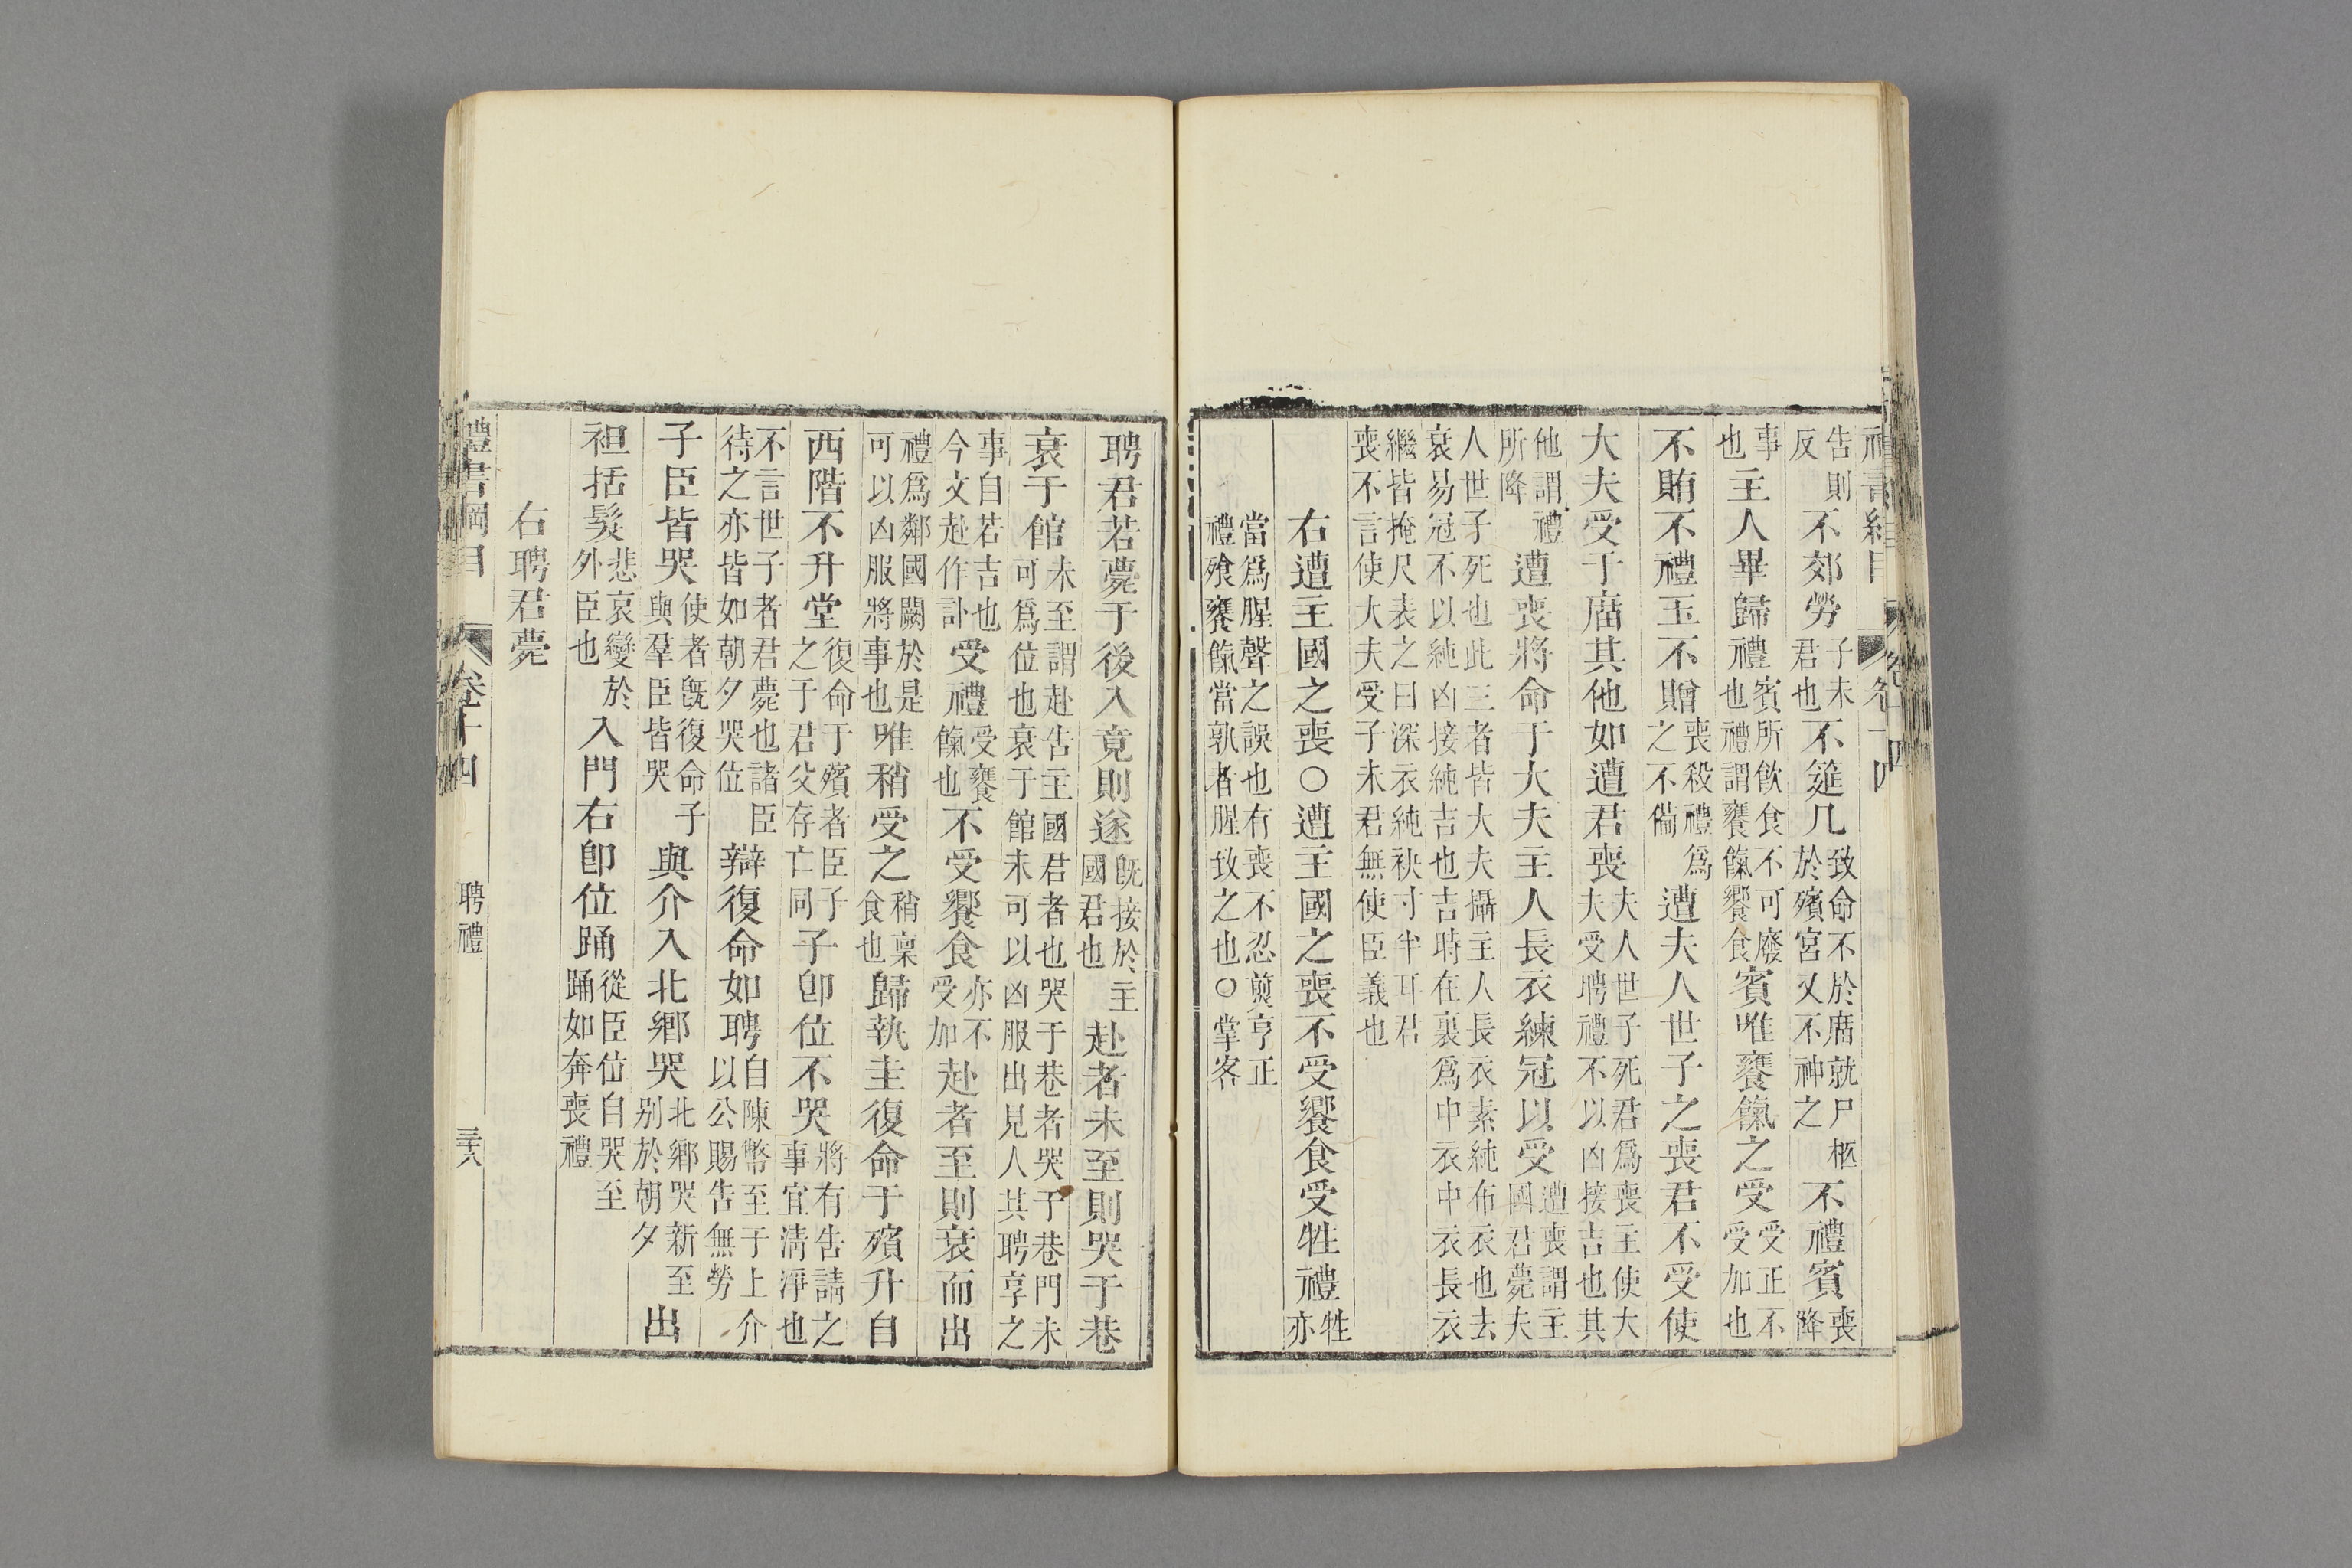 告則反不郊勞子未君也不筵几致命不於廟就尸柩於殯宮又不神之不禮賓喪降
事也主人畢歸禮賓所飲食不可廢也禮謂饔餼饗食賓唯饔餼之受受正不受加也
不賄不禮玉不贈喪殺禮爲之不備遭夫人世子之喪君不受使
大夫受于廟其他如遭君喪夫人世子死君爲喪主使大夫受聘禮不以凶接吉也其
他謂禮所降遭喪將命于大夫主人長衣練冠以受遭喪謂主國君薨夫
人世子死也此三者皆大夫攝主人長衣素純布衣也去衰易冠不以純凶接純吉也吉時在裏爲中衣中衣長衣
繼皆掩尺表之曰深衣純袂寸半耳君喪不言使大夫受子未君無使臣義也
右遭主國之喪○遭主國之喪不受饗食受牲禮牲亦
當爲腥聲之誤也有喪不忍煎亨正禮飧饔餼當孰者腥致之也○掌客
聘君若薨于後入竟則遂旣接於主國君也赴者未至則哭于巷
衰于館未至謂赴告主國君者也哭于巷者哭于巷門未可爲位也衰于館未可以凶服出見人其聘享之
事自若吉也今文赴作訃受禮受饔餼也不受饗食亦不受加赴者至則衰而出
禮爲鄰國闕於是可以凶服將事也唯稍受之稍稟食也歸執圭復命于殯升自
西階不升堂復命于殯者臣子之于君父存亡同子卽位不哭將有告請之事宜清淨也
不言世子者君薨也諸臣待之亦皆如朝夕哭位辯復命如聘自陳幣至于上介以公賜告無勞
子臣皆哭使者旣復命子與羣臣皆哭與介入北鄉哭北鄉哭新至别於朝夕出
袒括髮悲哀變於外臣也入門右卽位踊從臣位自哭至踊如奔喪禮
右聘君薨
禮書綱目 卷十四 聘禮 三十八